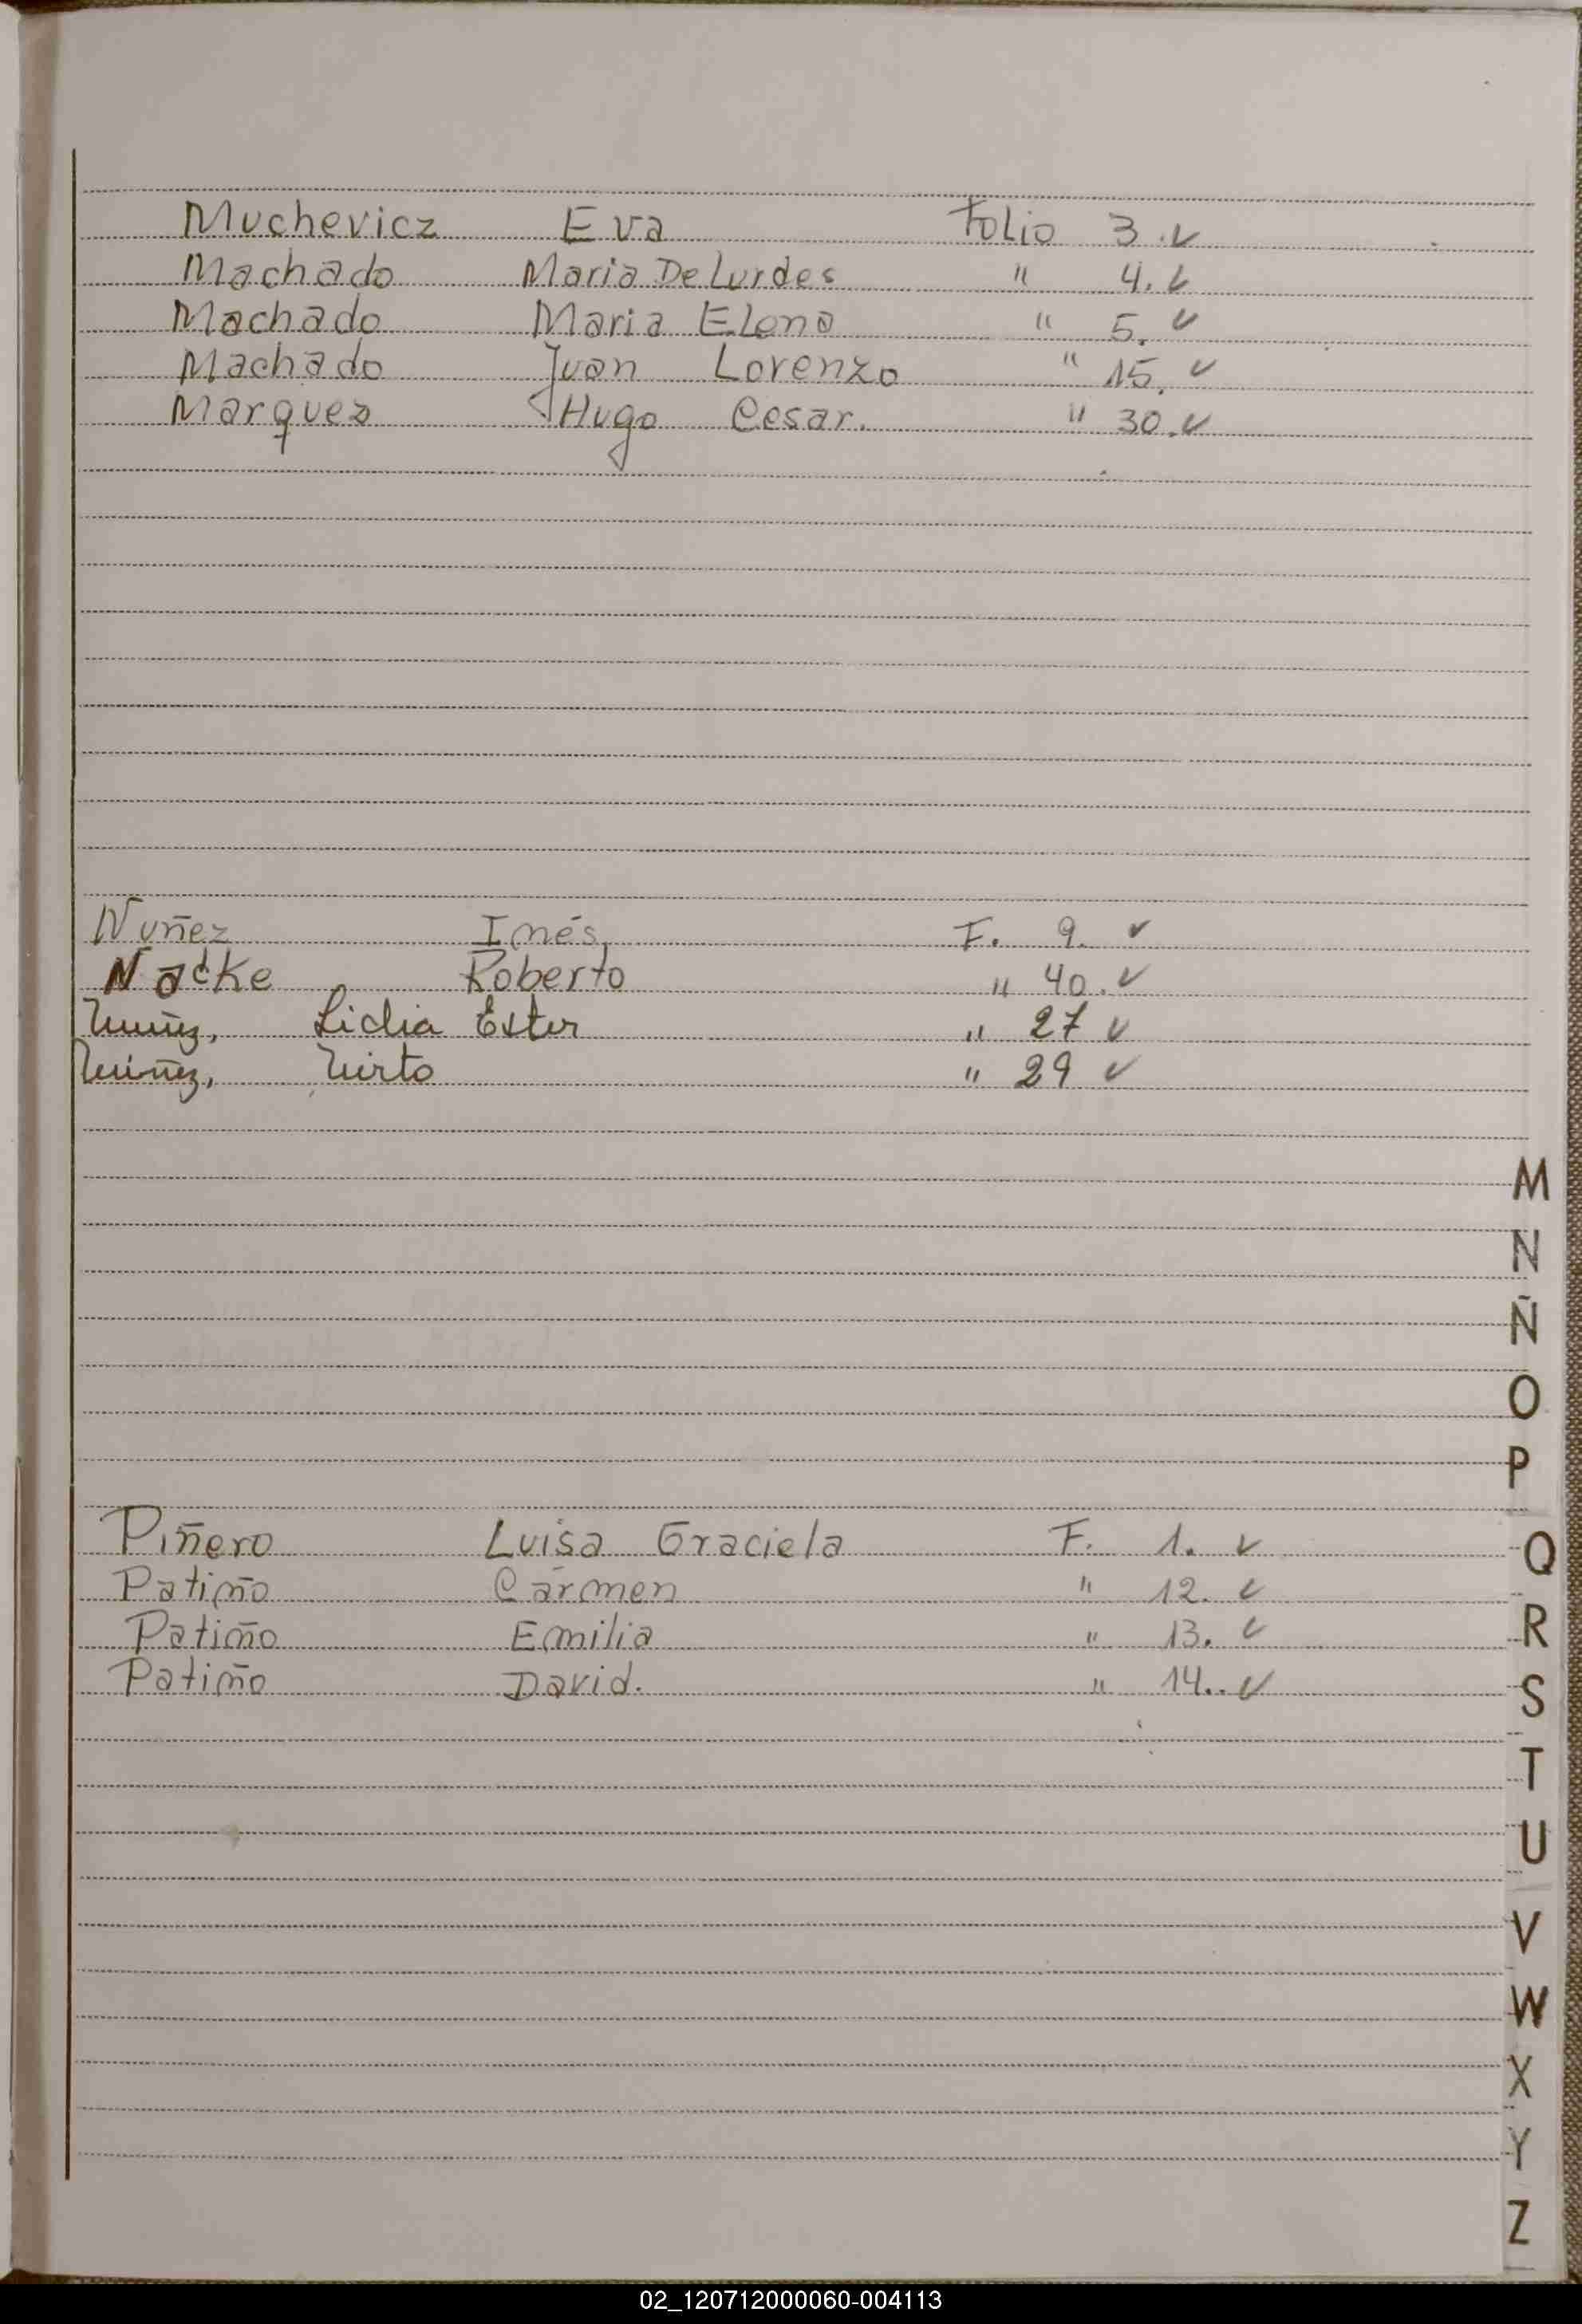 Muchevicz Eva Folio 3. ✓
Machado Maria De Lurdes " 4. ✓
Machado Maria Elena " 5. ✓
Machado Juan Lorenzo " 15. ✓
Marquez Hugo Cesar. " 30. ✓
Nuñez Inés, F. 9. ✓
Nacke Roberto " 40. ✓
Nuñez, Lidia Ester " 27 ✓
Núñez, Mirto " 29 ✓
M
N
Ñ
O
P
Piñero Luisa Graciela F. 1. ✓
Q
Patiño Carmen " 12. ✓
Patiño Emilia " 13. ✓
R
Patiño David. " 14.. ✓
S
T
U
V
W
X
Y
Z
02_120712000060-004113